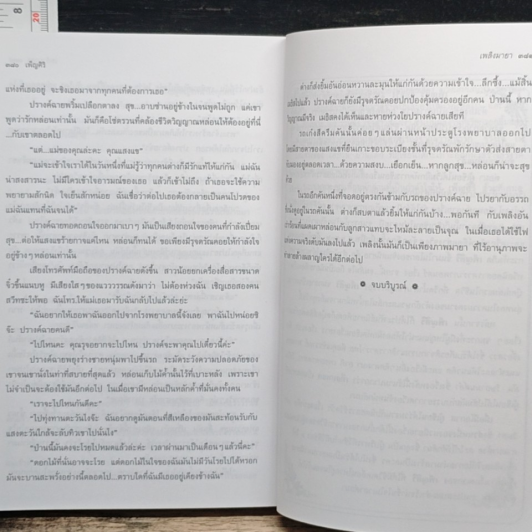 ๓๘๐ เพ็ญศิริ
แห่งที่เธออยู่ จะชิงเธอมาจากทุกคนที่ต้องการเธอ"
ปรางค์ฉายพริ้มเปลือกตาลง สุข...อาบซ่านอยู่ข้างในจนพูดไม่ถูก แต่เขา
พูดว่ารักหล่อนเท่านั้น มันก็คือโซ่ตรวนที่คล้องชีวิตวิญญาณหล่อนให้ต้องอยู่ที่นี่
...กับเขาตลอดไป
"แต่...แม่ของคุณล่ะคะ คุณแสงแข"
"แม่จะเข้าใจเราได้ในวันหนึ่งที่แม่รู้ว่าทุกคนต่างก็มีรักแท้ให้แก่กัน แม่ฉัน
น่าสงสารนะ ไม่มีใครเข้าใจอารมณ์ของเธอ แล้วก็เข้าไม่ถึง ถ้าเธอจะใช้ความ
พยายามสักนิด ใจเย็นสักหน่อย ฉันเชื่อว่าต่อไปเธอต้องกลายเป็นคนโปรดของ
แม่ฉันแทนที่ฉันจนได้"
ปรางค์ฉายทอดถอนใจออกมาเบาๆ มันเป็นเสียงถอนใจของคนที่กำลังเปี่ยม
สุข...ต่อให้แสงแขร้ายกาจแค่ไหน หล่อนก็ทนได้ ขอเพียงมีรุจตรัยคอยให้กำลังใจ
อยู่ข้างๆ หล่อนเท่านั้น
เสียงโทรศัพท์มือถือของปรางค์ฉายดังขึ้น สาวน้อยยกเครื่องสื่อสารขนาด
จิ๋วขึ้นแนบหู มีเสียงใสๆ ของแววรรณดังมาว่า ไม่ต้องห่วงฉัน เชิญเธอสองคน
สวีทซะให้พอ ฉันโทร.ให้แม่เธอมารับฉันกลับไปแล้วล่ะย่ะ
"ฉันอยากให้เธอพาฉันออกไปจากโรงพยาบาลนี้จังเลย พาฉันไปหน่อยซิ
จ๊ะ ปรางค์ฉายคนดี"
"ไปไหนคะ คุณรุจอยากจะไปไหน ปรางค์จะพาคุณไปเดี๋ยวนี้ค่ะ"
ปรางค์ฉายพยุงร่างชายหนุ่มพาไปขึ้นรถ ระมัดระวังความปลอดภัยของ
เขาจนเขานั่งในท่าที่สบายที่สุดแล้ว หล่อนเก็บไม้ค้ำนั้นไว้ที่เบาะหลัง เพราะเขา
ไม่จำเป็นจะต้องใช้มันอีกต่อไป ในเมื่อเขามีหล่อนเป็นหลักค้ำที่มั่นคงทั้งคน
"เราจะไปไหนกันดีคะ"
"ไปทุ่งทานตะวันไงจ๊ะ ฉันอยากดูมันตอนที่สีเหลืองของมันสะท้อนรับกับ
แสงตะวันใกล้จะลับทิวเขาไปนั่นไง"
"ป่านนี้มันคงจะโรยไปหมดแล้วล่ะค่ะ เวลาผ่านมาเป็นเดือนๆ แล้วนี่คะ"
"ดอกไม้ที่นั่นอาจจะโรย แต่ดอกไม้ในใจของฉันมันไม่มีวันโรยไปได้หรอก
มันจะบานสะพรั่งอย่างนี้ตลอดไป...ตราบใดที่ฉันมีเธออยู่เคียงข้างฉัน"
เพลิงมายา
ต่างก็ส่งยิ้มอันอ่อนหวานละมุนให้แก่กันด้วยความเข้าใจ...ลึกซึ้ง...แม้สิ้น
ปรางค์ฉายก็ยังมีรุจตรัยคอยปกป้องคุ้มครองอยู่อีกคน ป่านนี้ หาก
วิญญาณมีจริง เมธัสคงได้เห็นและหายห่วงใยปรางค์ฉายเสียที
รถเก๋งสีครีมคันนั้นค่อยๆ แล่นผ่านหน้าประตูโรงพยาบาลออกไป
สายตาของแสงแขที่ยืนเกาะขอบระเบียงชั้นที่รุจตรัยพักรักษาตัวส่งสายตา
มองอยู่ตลอดเวลา...ด้วยความสงบ...เยือกเย็น...หากลูกสุข...หล่อนก็น่าจะสุข
ในรถอีกคันหนึ่งที่จอดอยู่ตรงกันข้ามกับรถของปรางค์ฉาย โปรยากับอรรถ
นั่งคุยอยู่ในรถคันนั้น ต่างก็สบตาแล้วยิ้มให้แก่กันบ้าง...พอกันที กับเพลิงอัน
ที่แผดเผาหล่อนกับลูกสาวแทบจะไหม้ละลายเป็นจุณ ในเมื่อเธอได้ใช้ไฟ
แห่งความจริงดับมันลงไปแล้ว เพลิงนั้นมันก็เป็นเพียงภาพมายา ที่ไร้อานุภาพจะ
ทำลายล้างเผาผลาญใครได้อีกต่อไป
จบบริบูรณ์